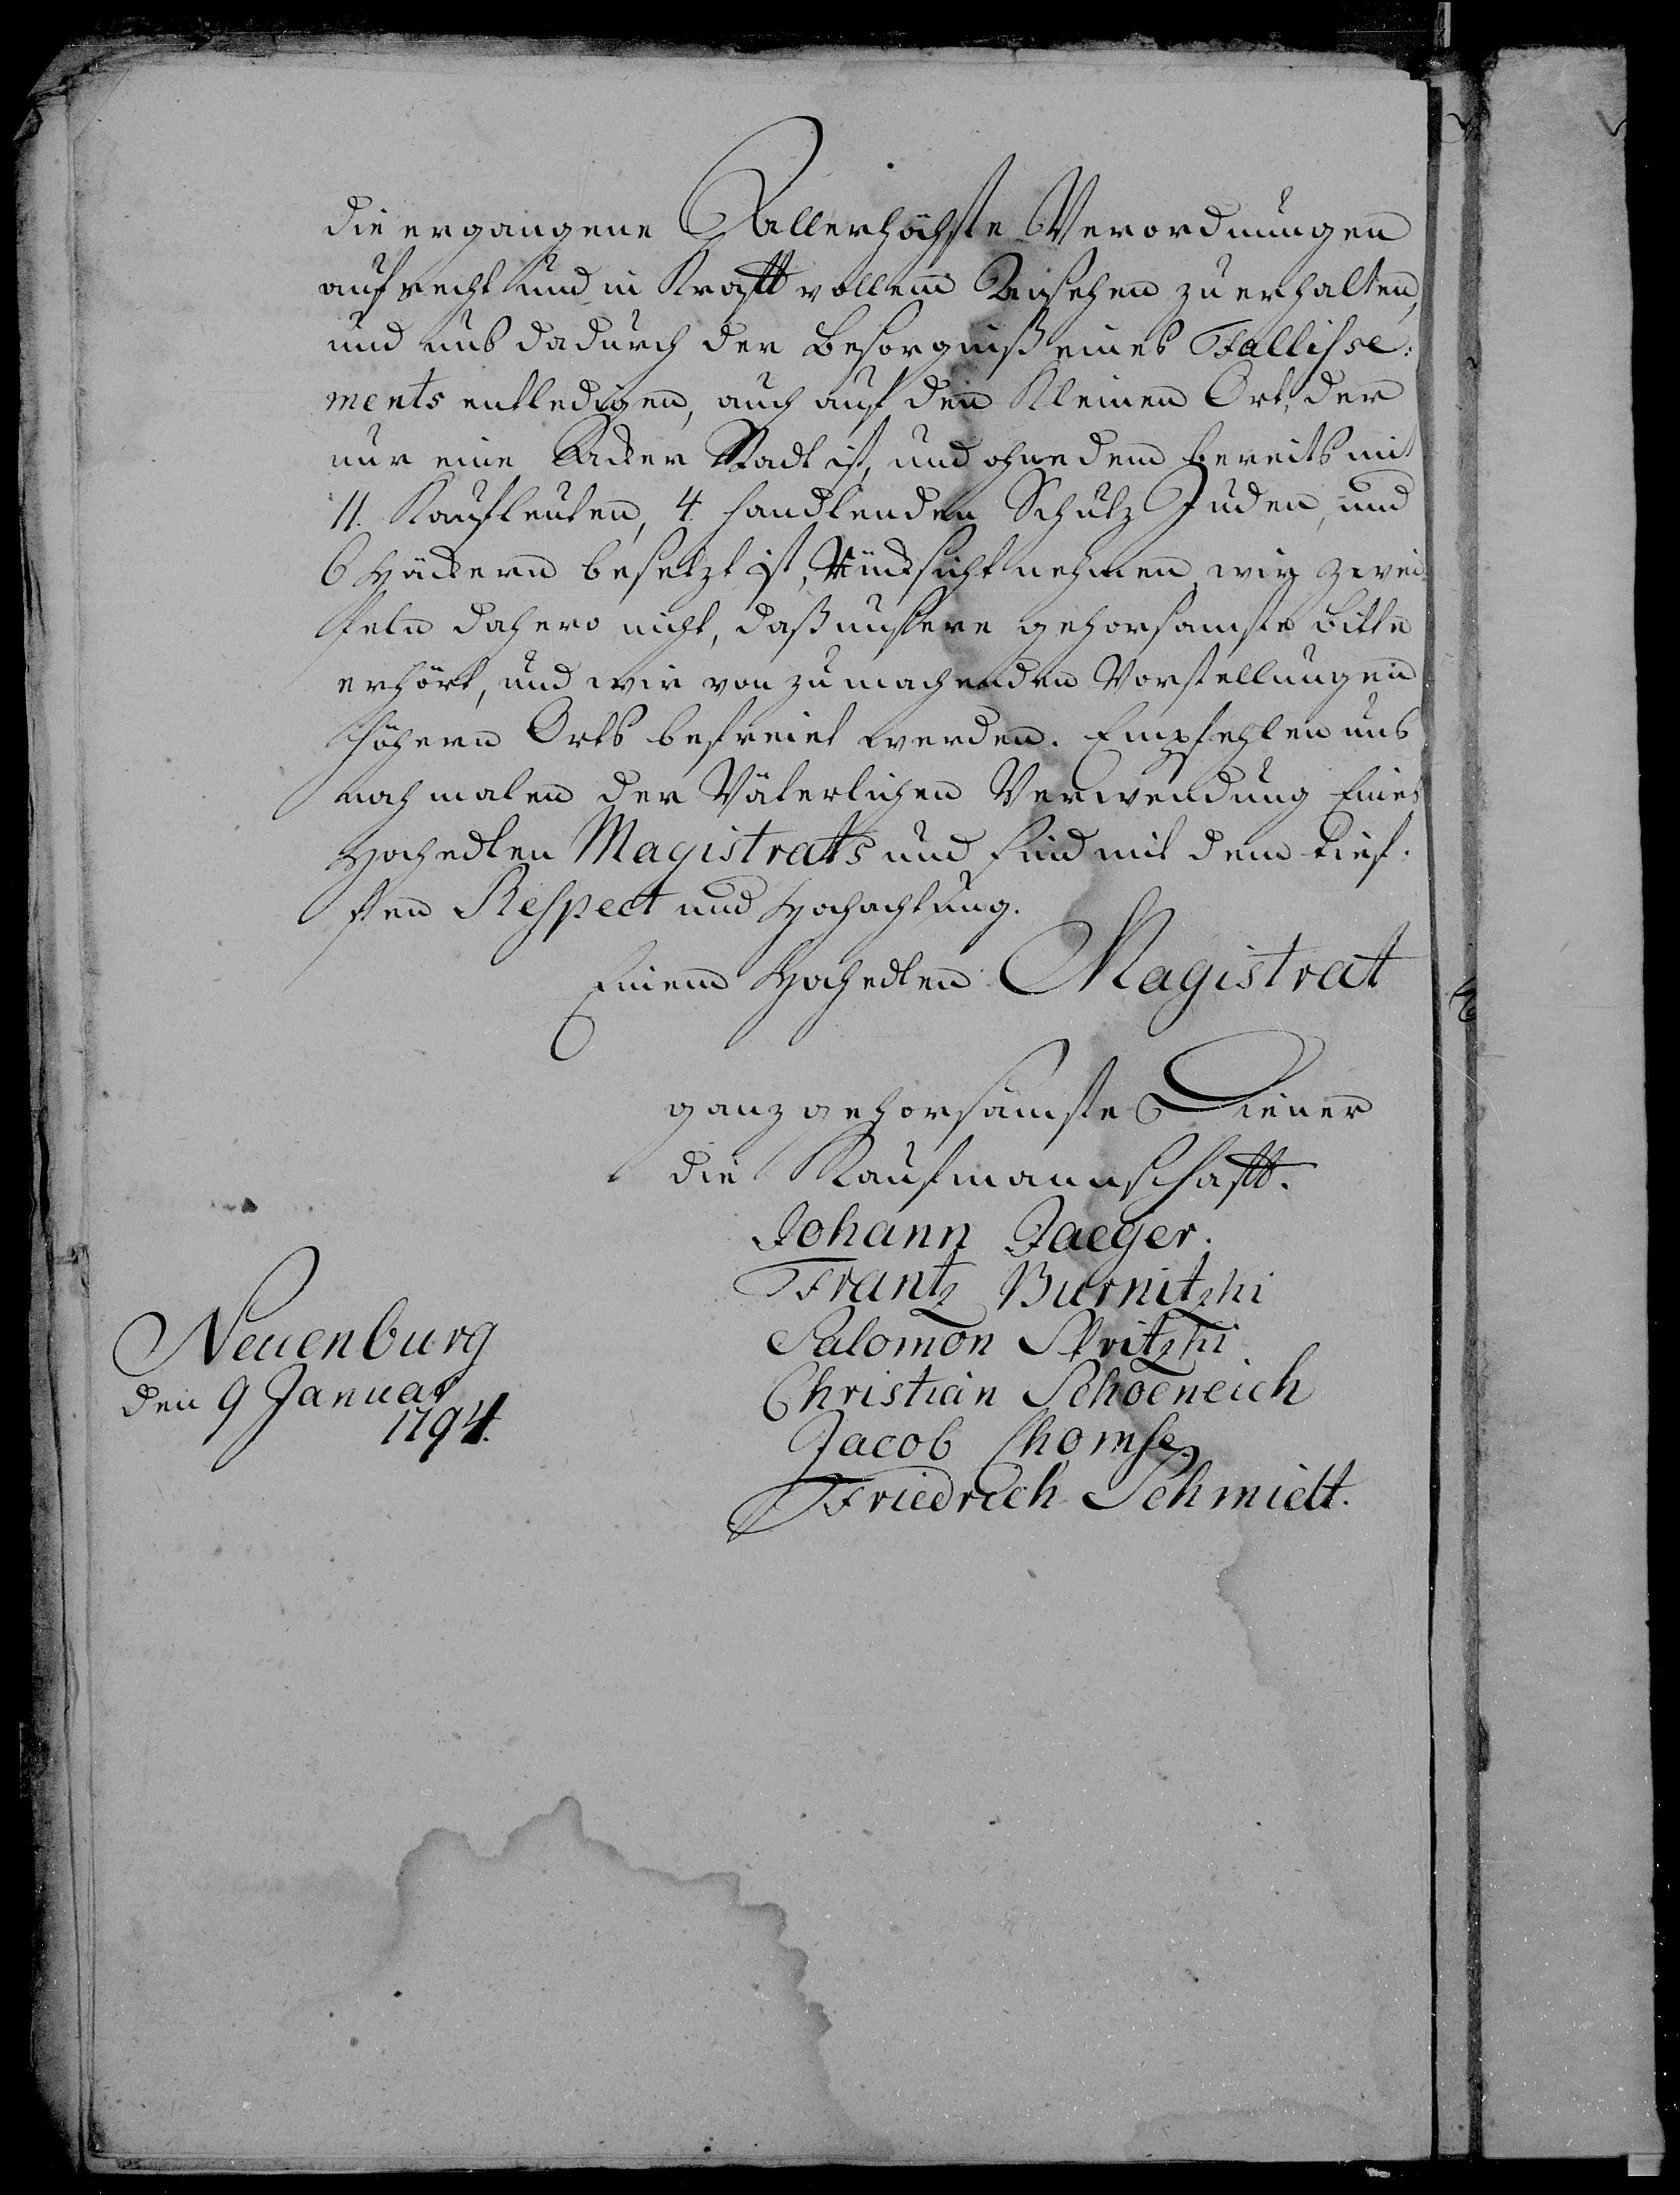 die ergangene Allerhöchste Verordnungen
aufrecht und in Krafft vollem Ansehen zu erhalten,
und uns dadurch der Besorgniß eines Fallisse:
ments entledigen, auch auf den kleinen Ort, der
nur eine Acker Stadt ist, und ohnedem bereits mit
11. Kaufleuten, 4. handlenden Schutz Juden, und
6 Häckern besetzt ist, Rücksicht nehmen, wir zwei:
feln dahero nicht, daß unsere gehorsamste Bitte
erhört, und wir von zu machenden Vorstellungen
höhern Orts befreiet werden. Empfehlen uns
nochmalen der Väterlichen Verwendung Eines
Hochedlen Magistrats und sind mit dem tief:
sten Respect und Hochachtung.
Einem Hochedlen Magistrat
ganz gehorsamste Diener
die Kaufmannschafft.
Johann Jaeger.
Frantz Burnitzki
Salomon Skritzki
Christian Schoeneich
Jacob Chomse
Friedrich Schmidt.
Neuenburg
den 9 Januar
1794.